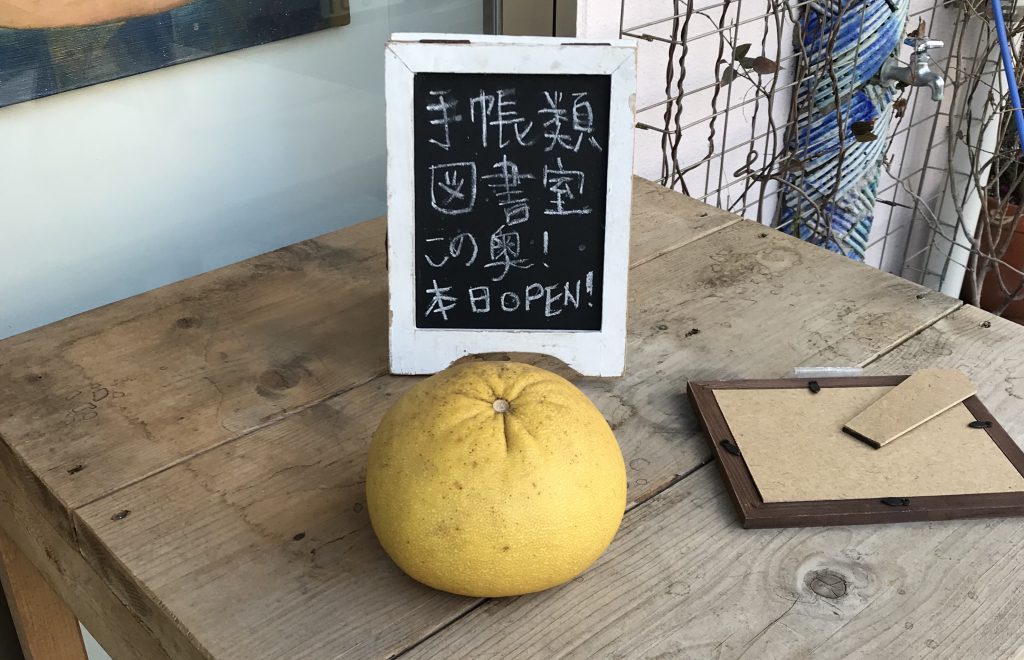 手帳類
図書室
この奥!
本日OPEN!